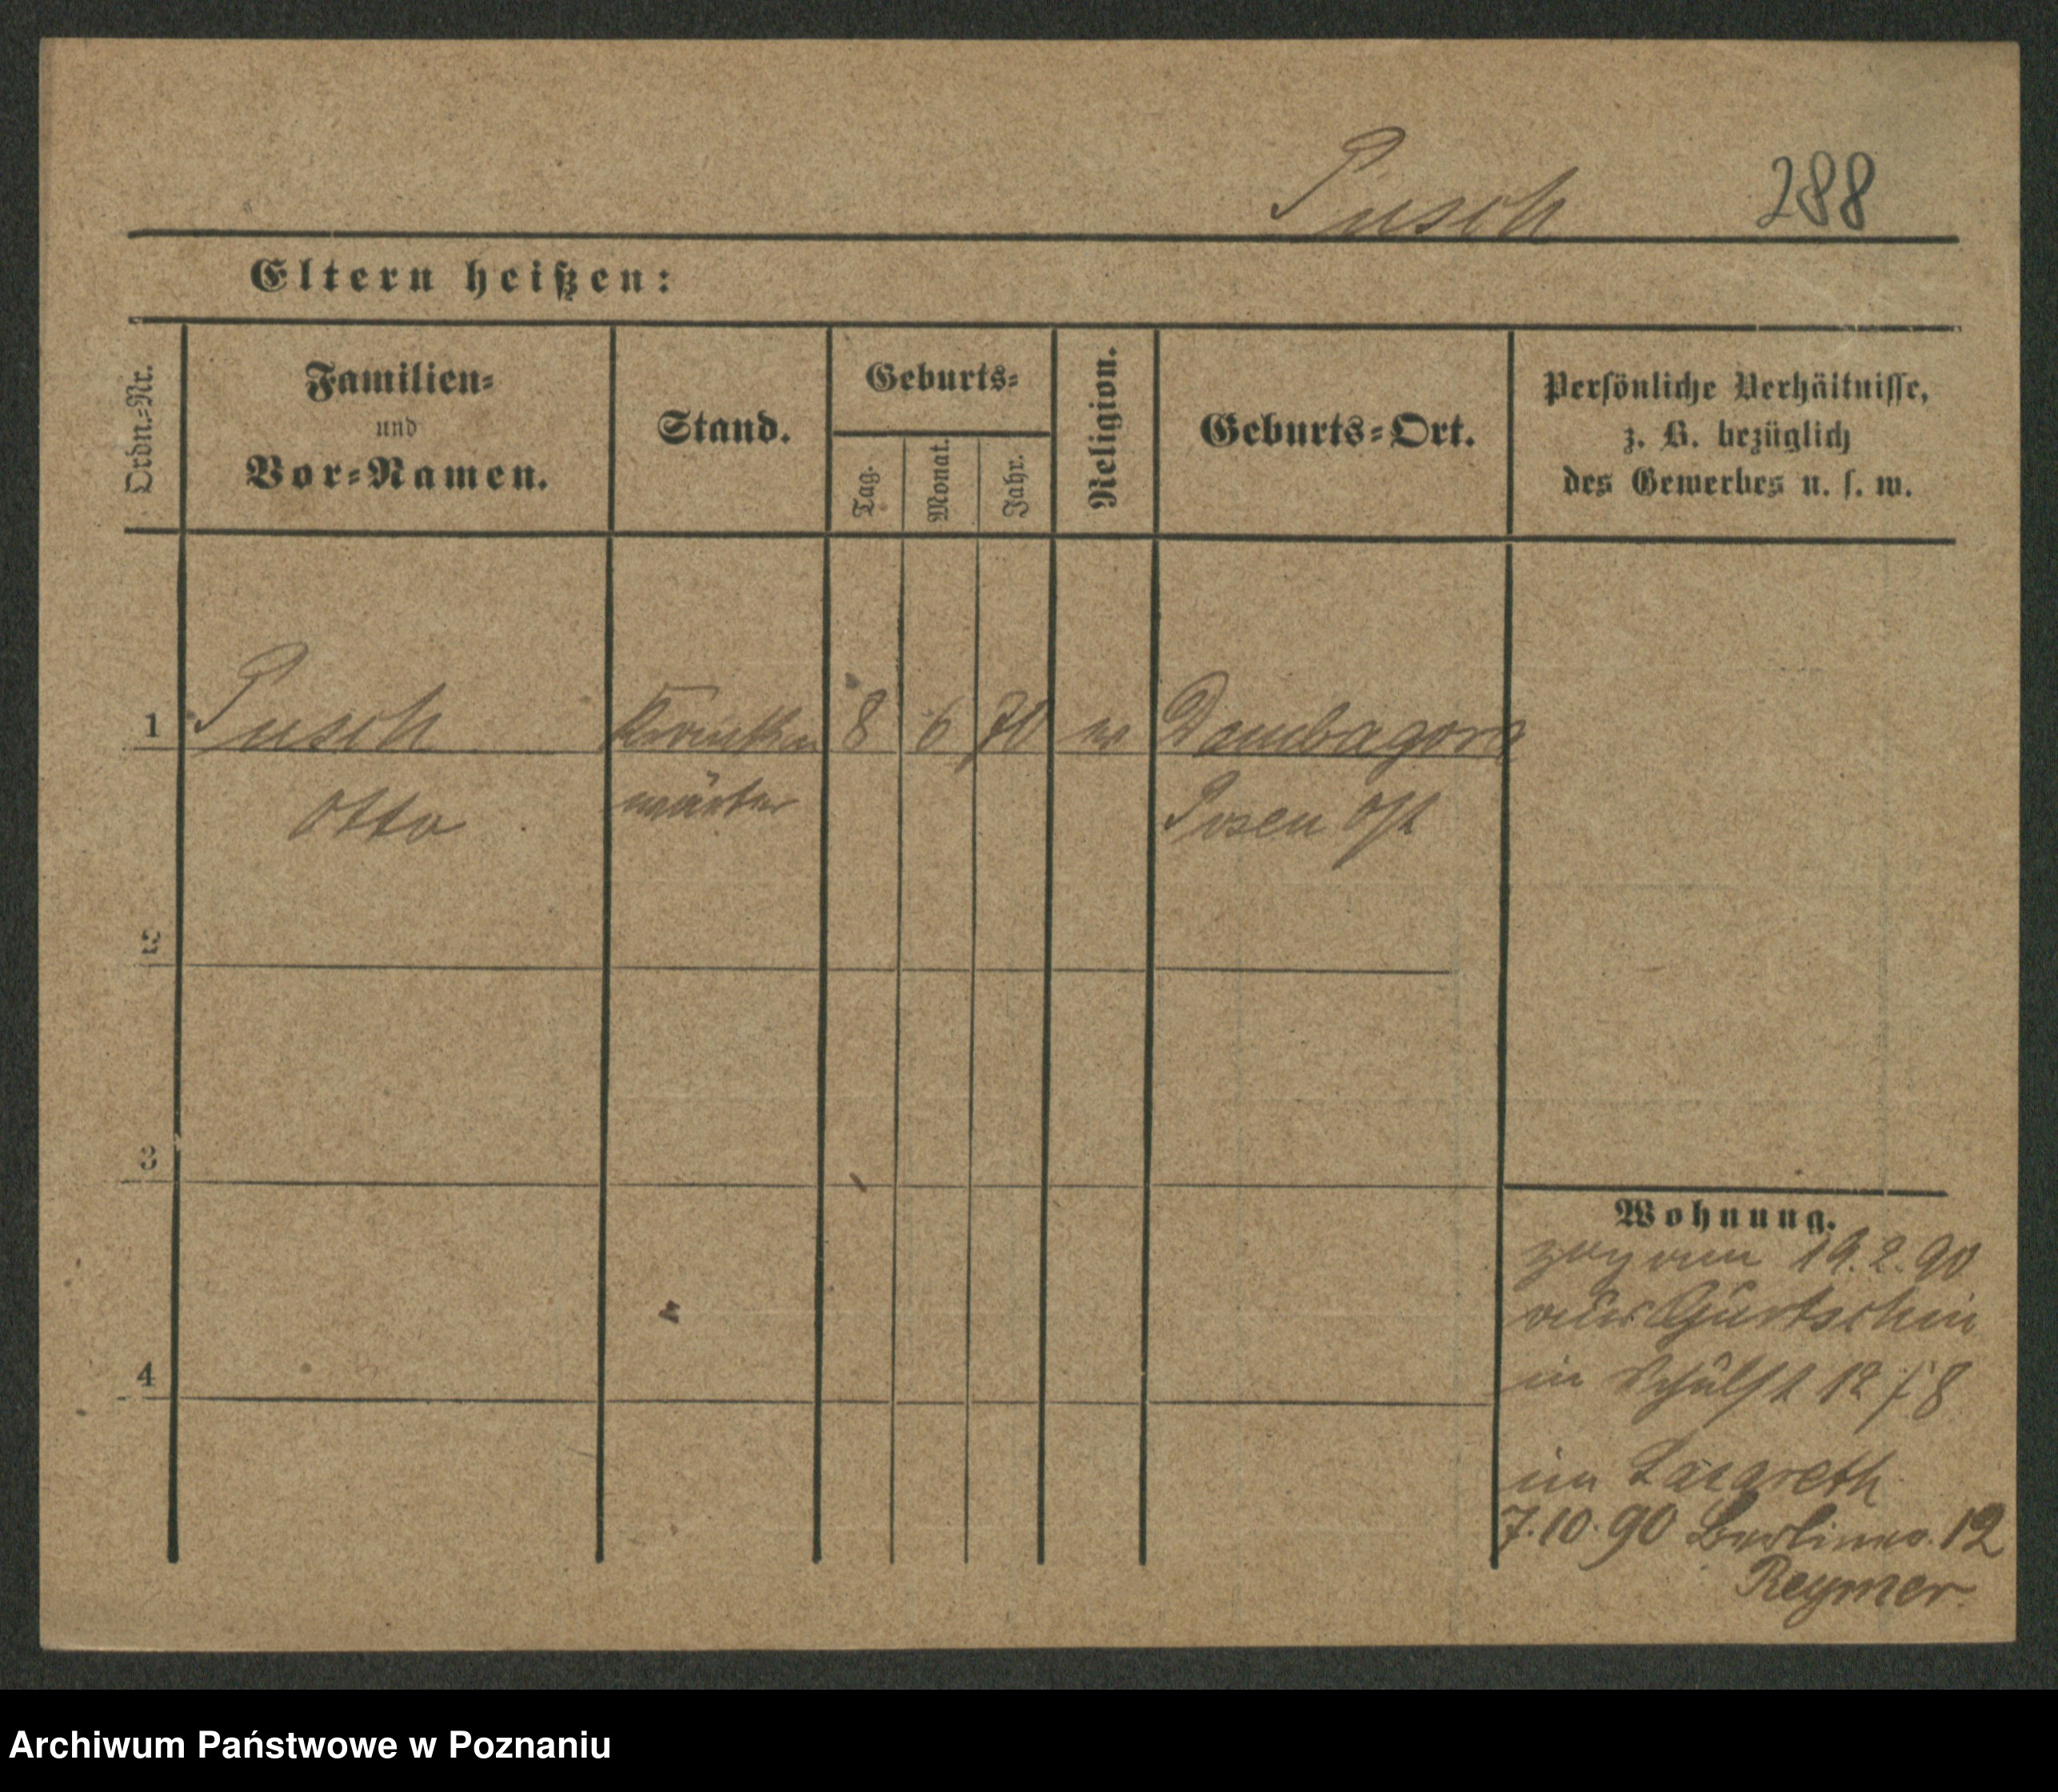 Pusch 288
Eltern heißen:
Ordn.=Nr.
Familien=
und
Vor=Namen.
Stand.
Geburts=
Tag.
Monat.
Jahr.
Religion.
Geburts=Ort.
Persönliche Verhältnisse,
z. B. bezüglich
des Gewerbes u. s. w.
1 Pusch Kranken 8 6 70 ev Dombagora
Otto wärter Posen Ost
2
3
4
Wohnung.
zog am 19.2.90
aus Gurtschin
in 12 / 8
im Lazareth
7.10.90 Berliner. 12
Reymer.
Archiwum Państwowe w Poznaniu